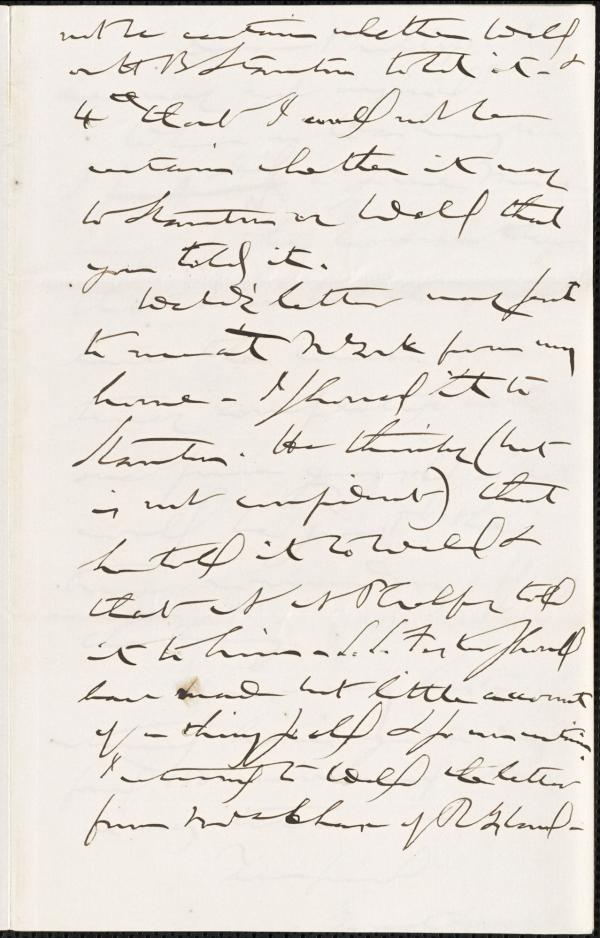 not be certain whether Weld
or H. B Stanton told it - &
4th that I could not be
certain whether it was
to Stanton or Weld that
you told it.
Weld's letter was sent
to me at N York from my
home - I showed it to
Stanton. He thinks (but
is not confident) that
he told it to Weld &
that A A Phelps told
it to him - S. S. Foster should
have made but little account
of a thing so old & so uncertain
I returned to Weld the letter
from Mrs Chace of R Island -